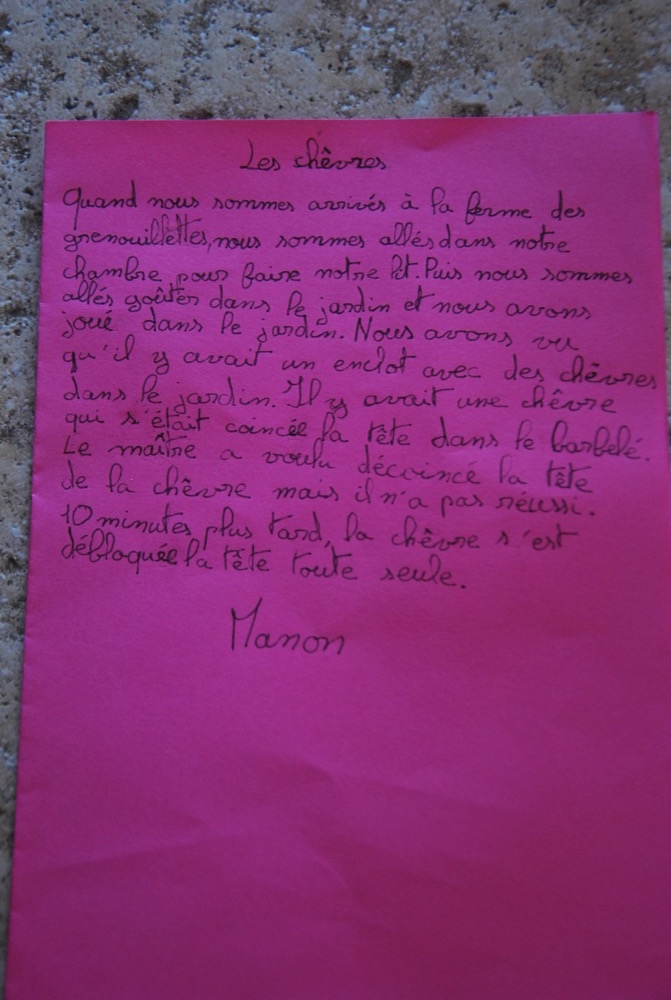 Les chêvres
Quand nous sommes arrivés à la ferme des
grenouillettes, nous sommes allés dans notre
chambre pour faire notre lit. Puis nous sommes
allés goûter dans le jardin et nous avons
joué dans le jardin. Nous avons vu
qu'il y avait un enclot avec des chêvres
dans le jardin. Il y avait une chêvre
qui s'était coincée la tête dans le barbelé.
Le maître a voulu décoincé la tête
de la chêvre mais il n'a pas réussi.
10 minutes plus tard, la chêvre s'est
débloquée la tête toute seule.
Manon